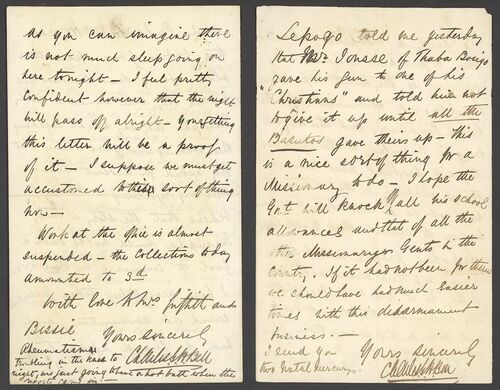 as you can imagine there
is not much sleep going on
here tonight — I feel pretty
confident however that the night
will pass off alright — you getting
this letter will be a proof
of it — I suppose we must get
accustomed to this sort of thing
now —
Work at the office is almost
suspended — the Collections today
amounted to 3d
With love to Mrs Griffith and
Bessie
Yours sincerely
Rheumatism
troubling in the knees to
night, was just going to have a hot bath when the
reports came in
Lepogo told me yesterday
that Mr. Jousse of Thaba Bosigo
gave his gun to one of his
"Christians" and told him not
to give it up until all the
Basutos gave theirs up — this
is a nice sort of thing for a
Missionary to do — I hope the
Govt. will knock off all his school
allowances and that of all the
other Missionary Gents in the
country. If it had not been for them
we should have had much easier
times with this disarmament
business.
I send you
two Natal Mercurys.
Yours Sincerely